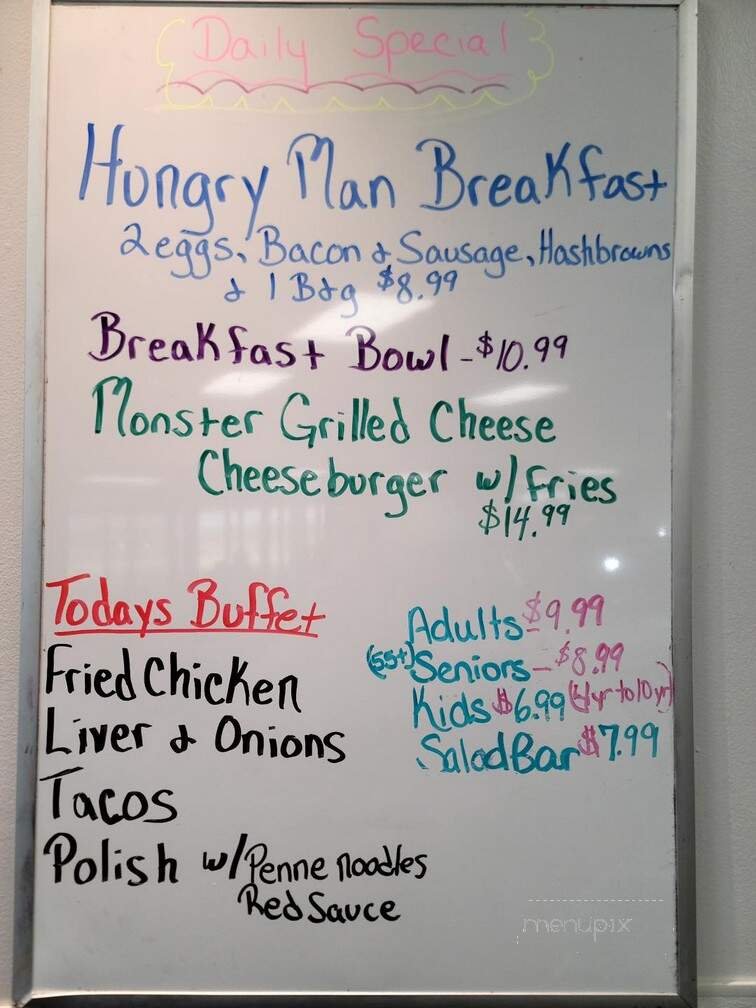 Daily Special
Hungry Man Breakfast
2 eggs, Bacon & Sausage, Hashbrowns
& 1 B&g $8.99
Breakfast Bowl - $10.99
Monster Grilled Cheese
Cheeseburger w/ fries
$14.99
Todays Buffet
Fried Chicken
Liver & Onions
Tacos
Polish w/ Penne noodles
Red Sauce
Adults - $9.99
(55+) Seniors - $8.99
Kids $6.99 (4yr to 10yr)
Salad Bar $7.99
menupix